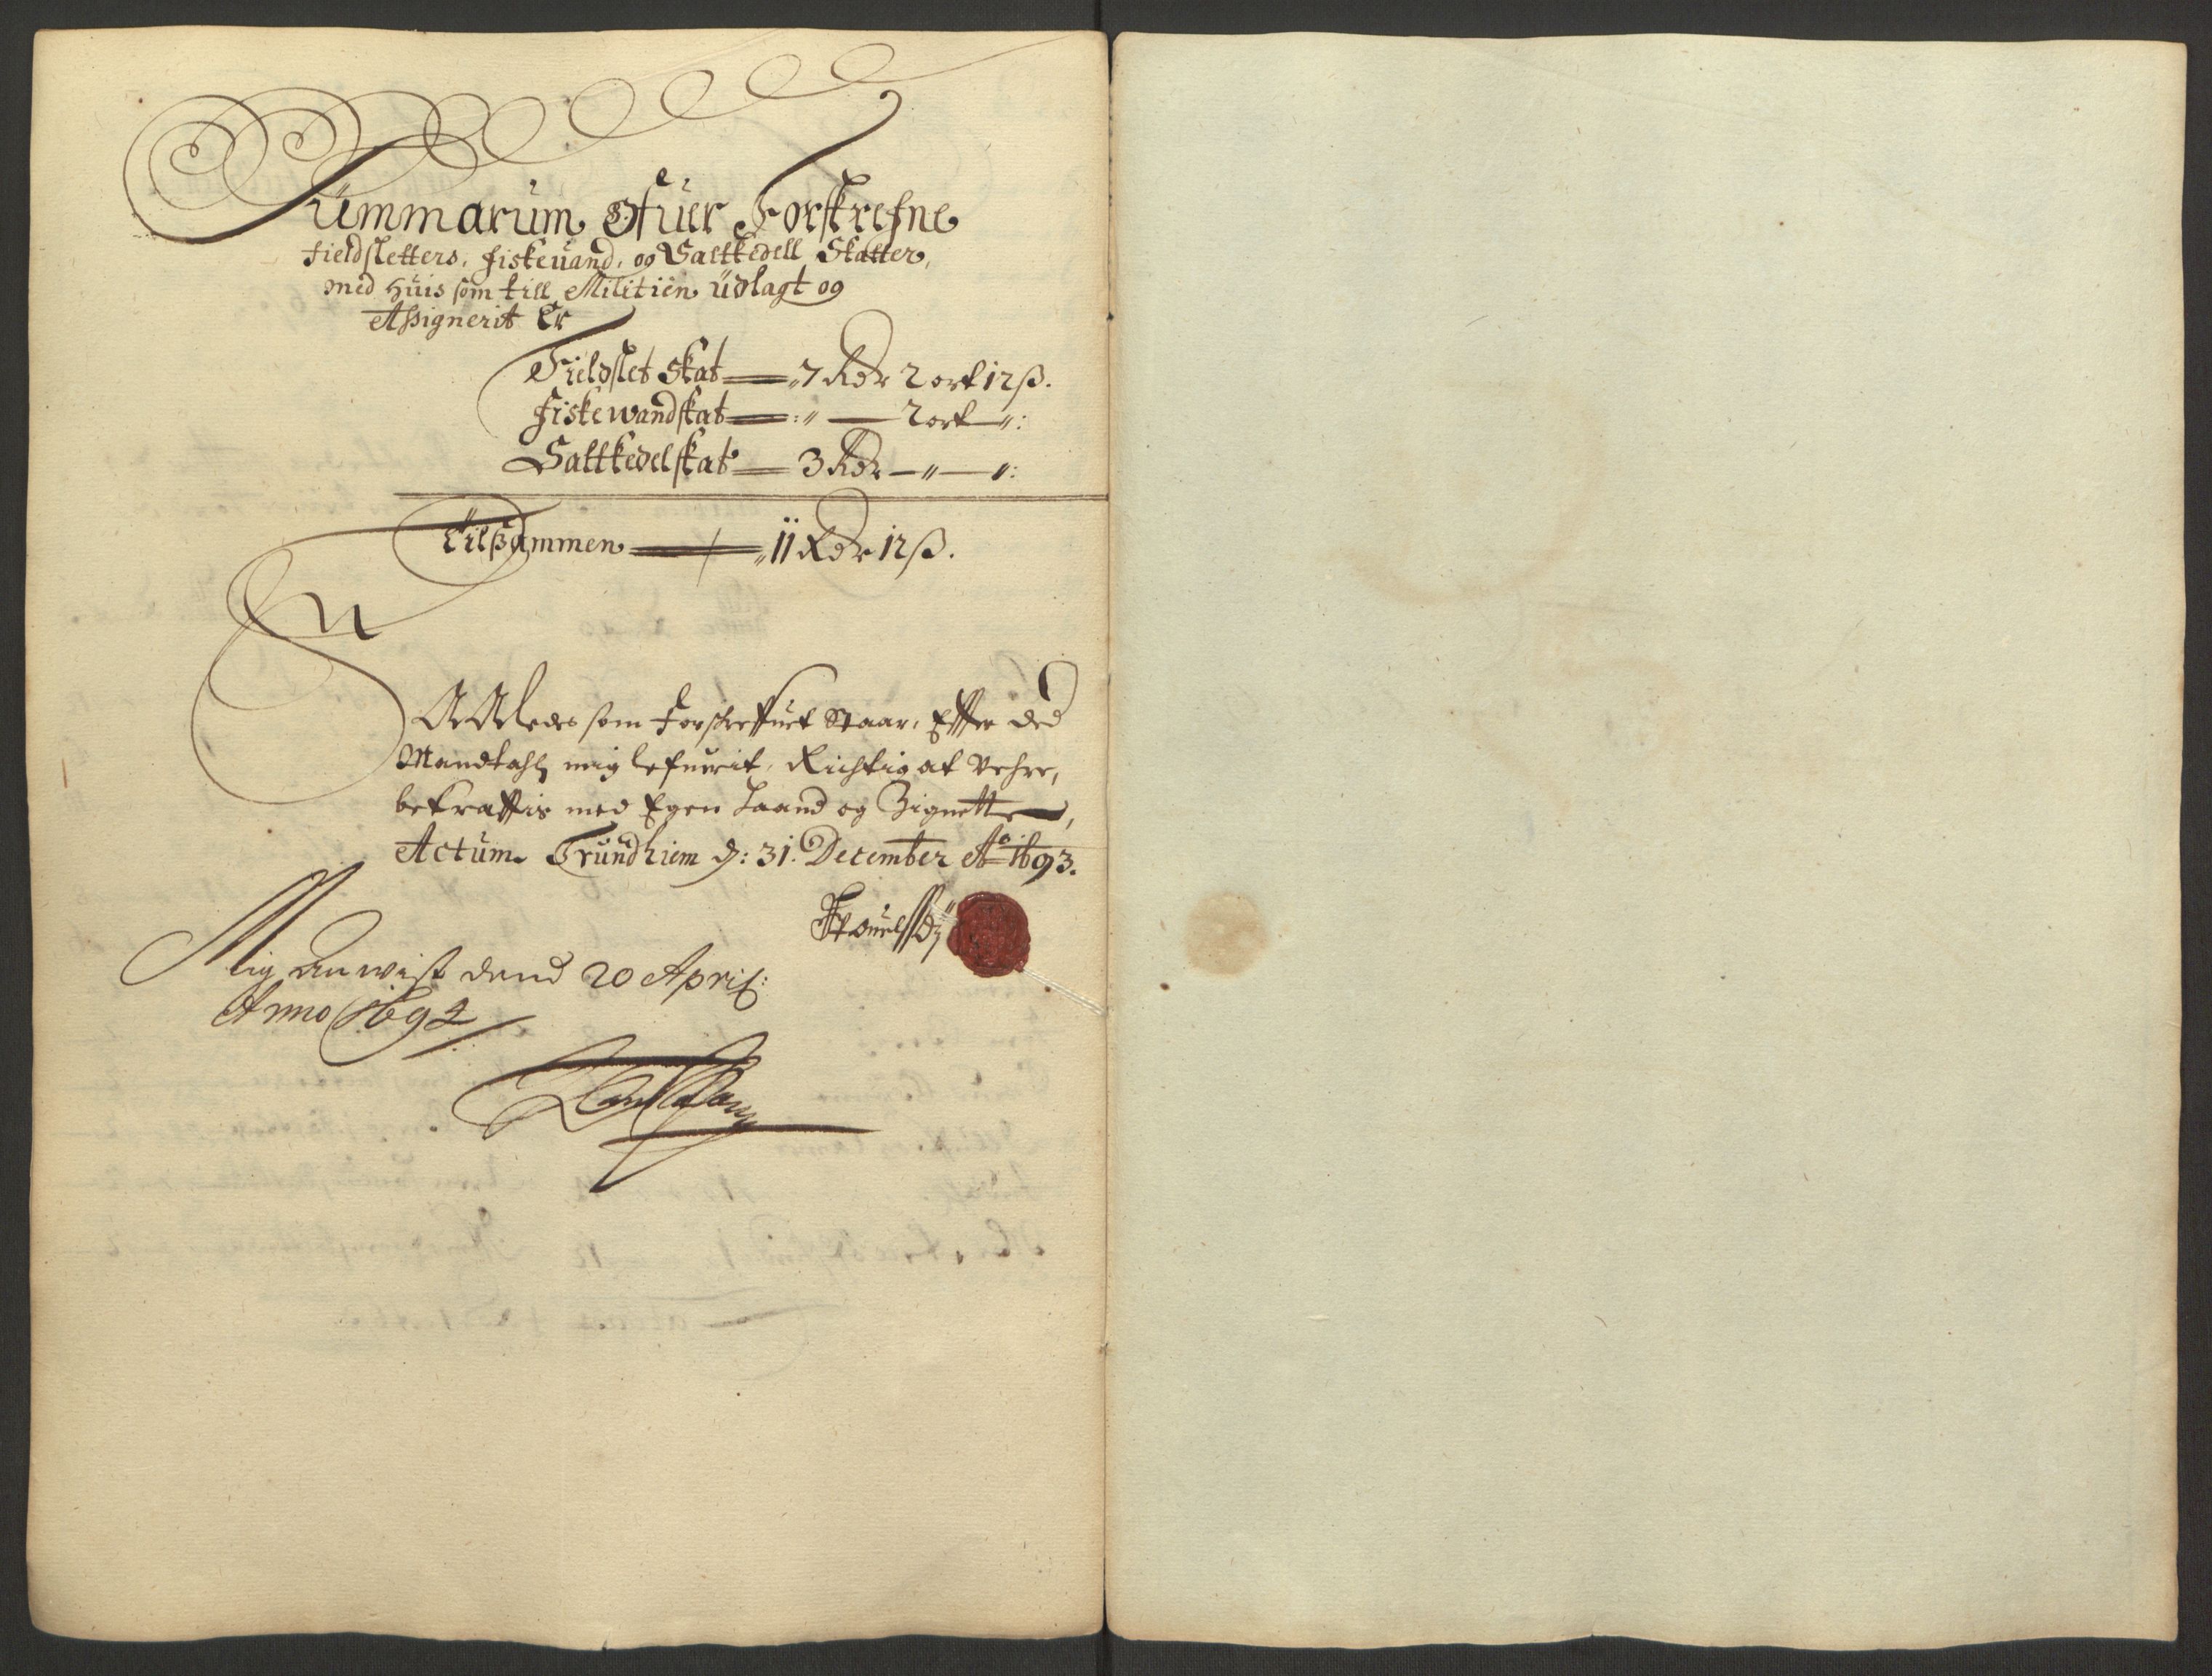 Summarum Ofuer Forskrefne
fieldsletters, fiskeuand, og Saltkedell Skatter,
med huis som till Militien üdlagt og
Assignerit Er
Fieldslet Skat — 7 Rdr 2 ort 12 ß.
fiskewandskat — : " — 2 ort — " :
Saltkedelskat — 3 Rdr — " — " :
Tilsammen — 11 Rdr 12 ß.
Saaledes som Forskreffuet Staar, Effter ded
Mandtahl mig lefuerit, Richtig at Vehre,
bekrafftis med Egen Haand og Zignette,
Actum Trundhiem d: 31. December Ao 1693.
Mig anwist dend 20 April:
Anno 1692